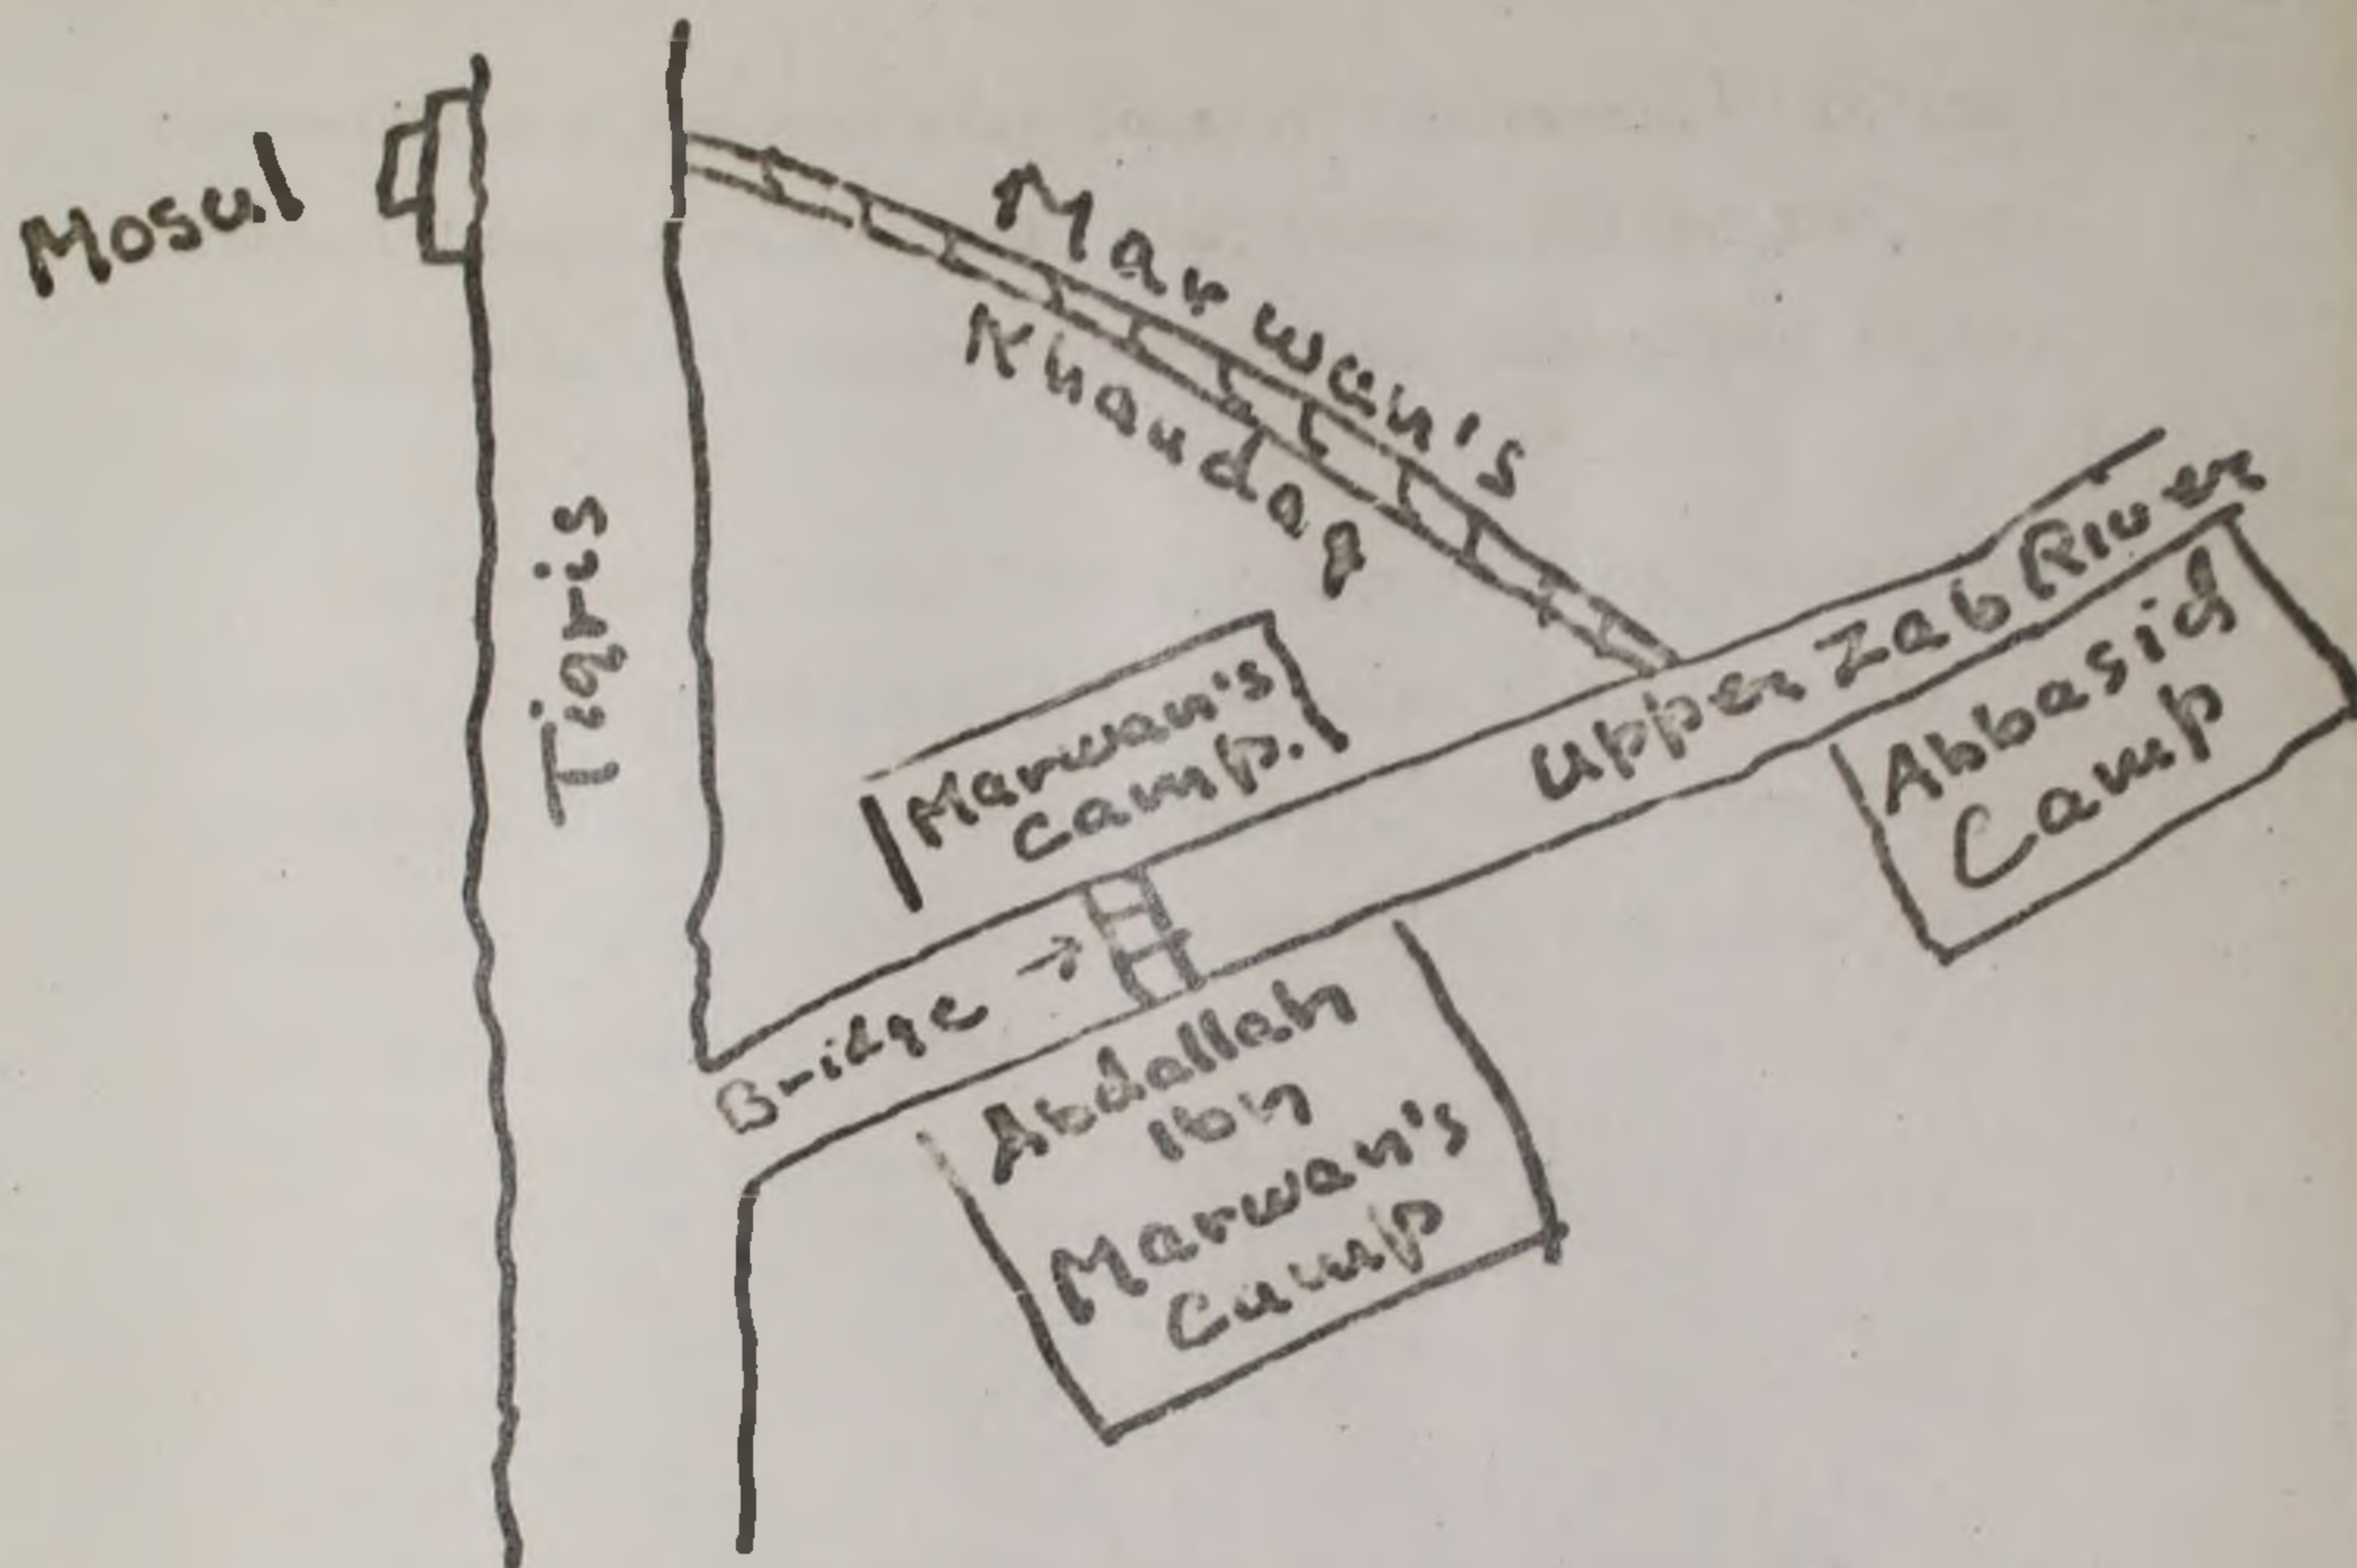 Mosul
Marwan's
Khandaq
Tigris
Upper Zab River
Marwan's
Camp.
Abbasid
Camp
Bridge →
Abdallah
Ibn
Marwan's
Camp